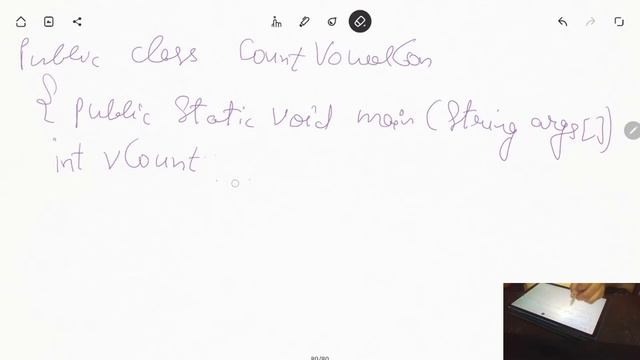 Public class CountVowelCon
{ public static void main (String args[])
int vCount
80/80